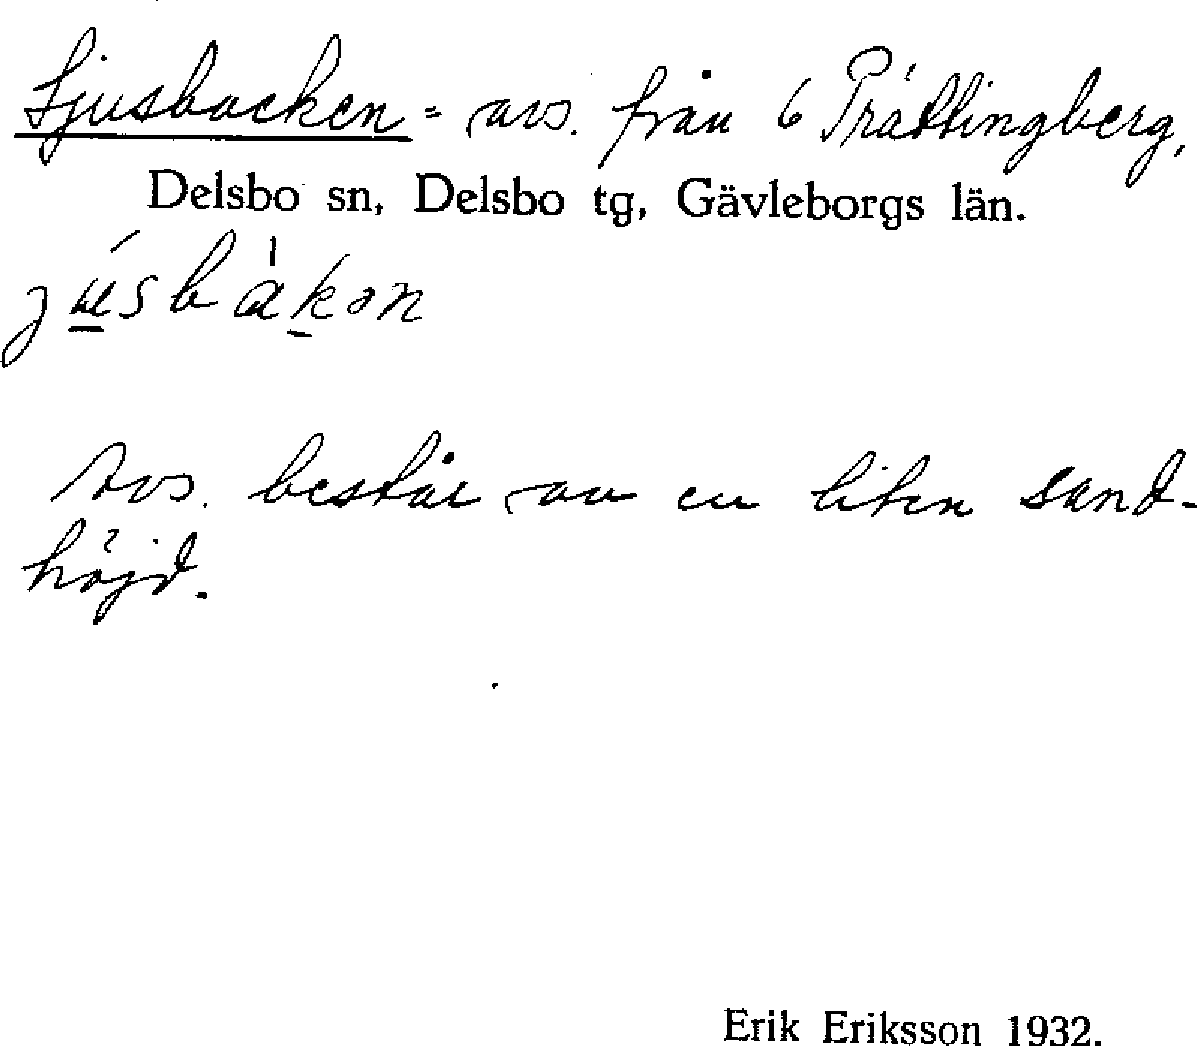 Ljusbacken = avs. från 6 Prästlingberg,
Delsbo sn, Delsbo tg, Gävleborgs län.
Avs. består av en liten sand-
höjd.
Erik Eriksson 1932.